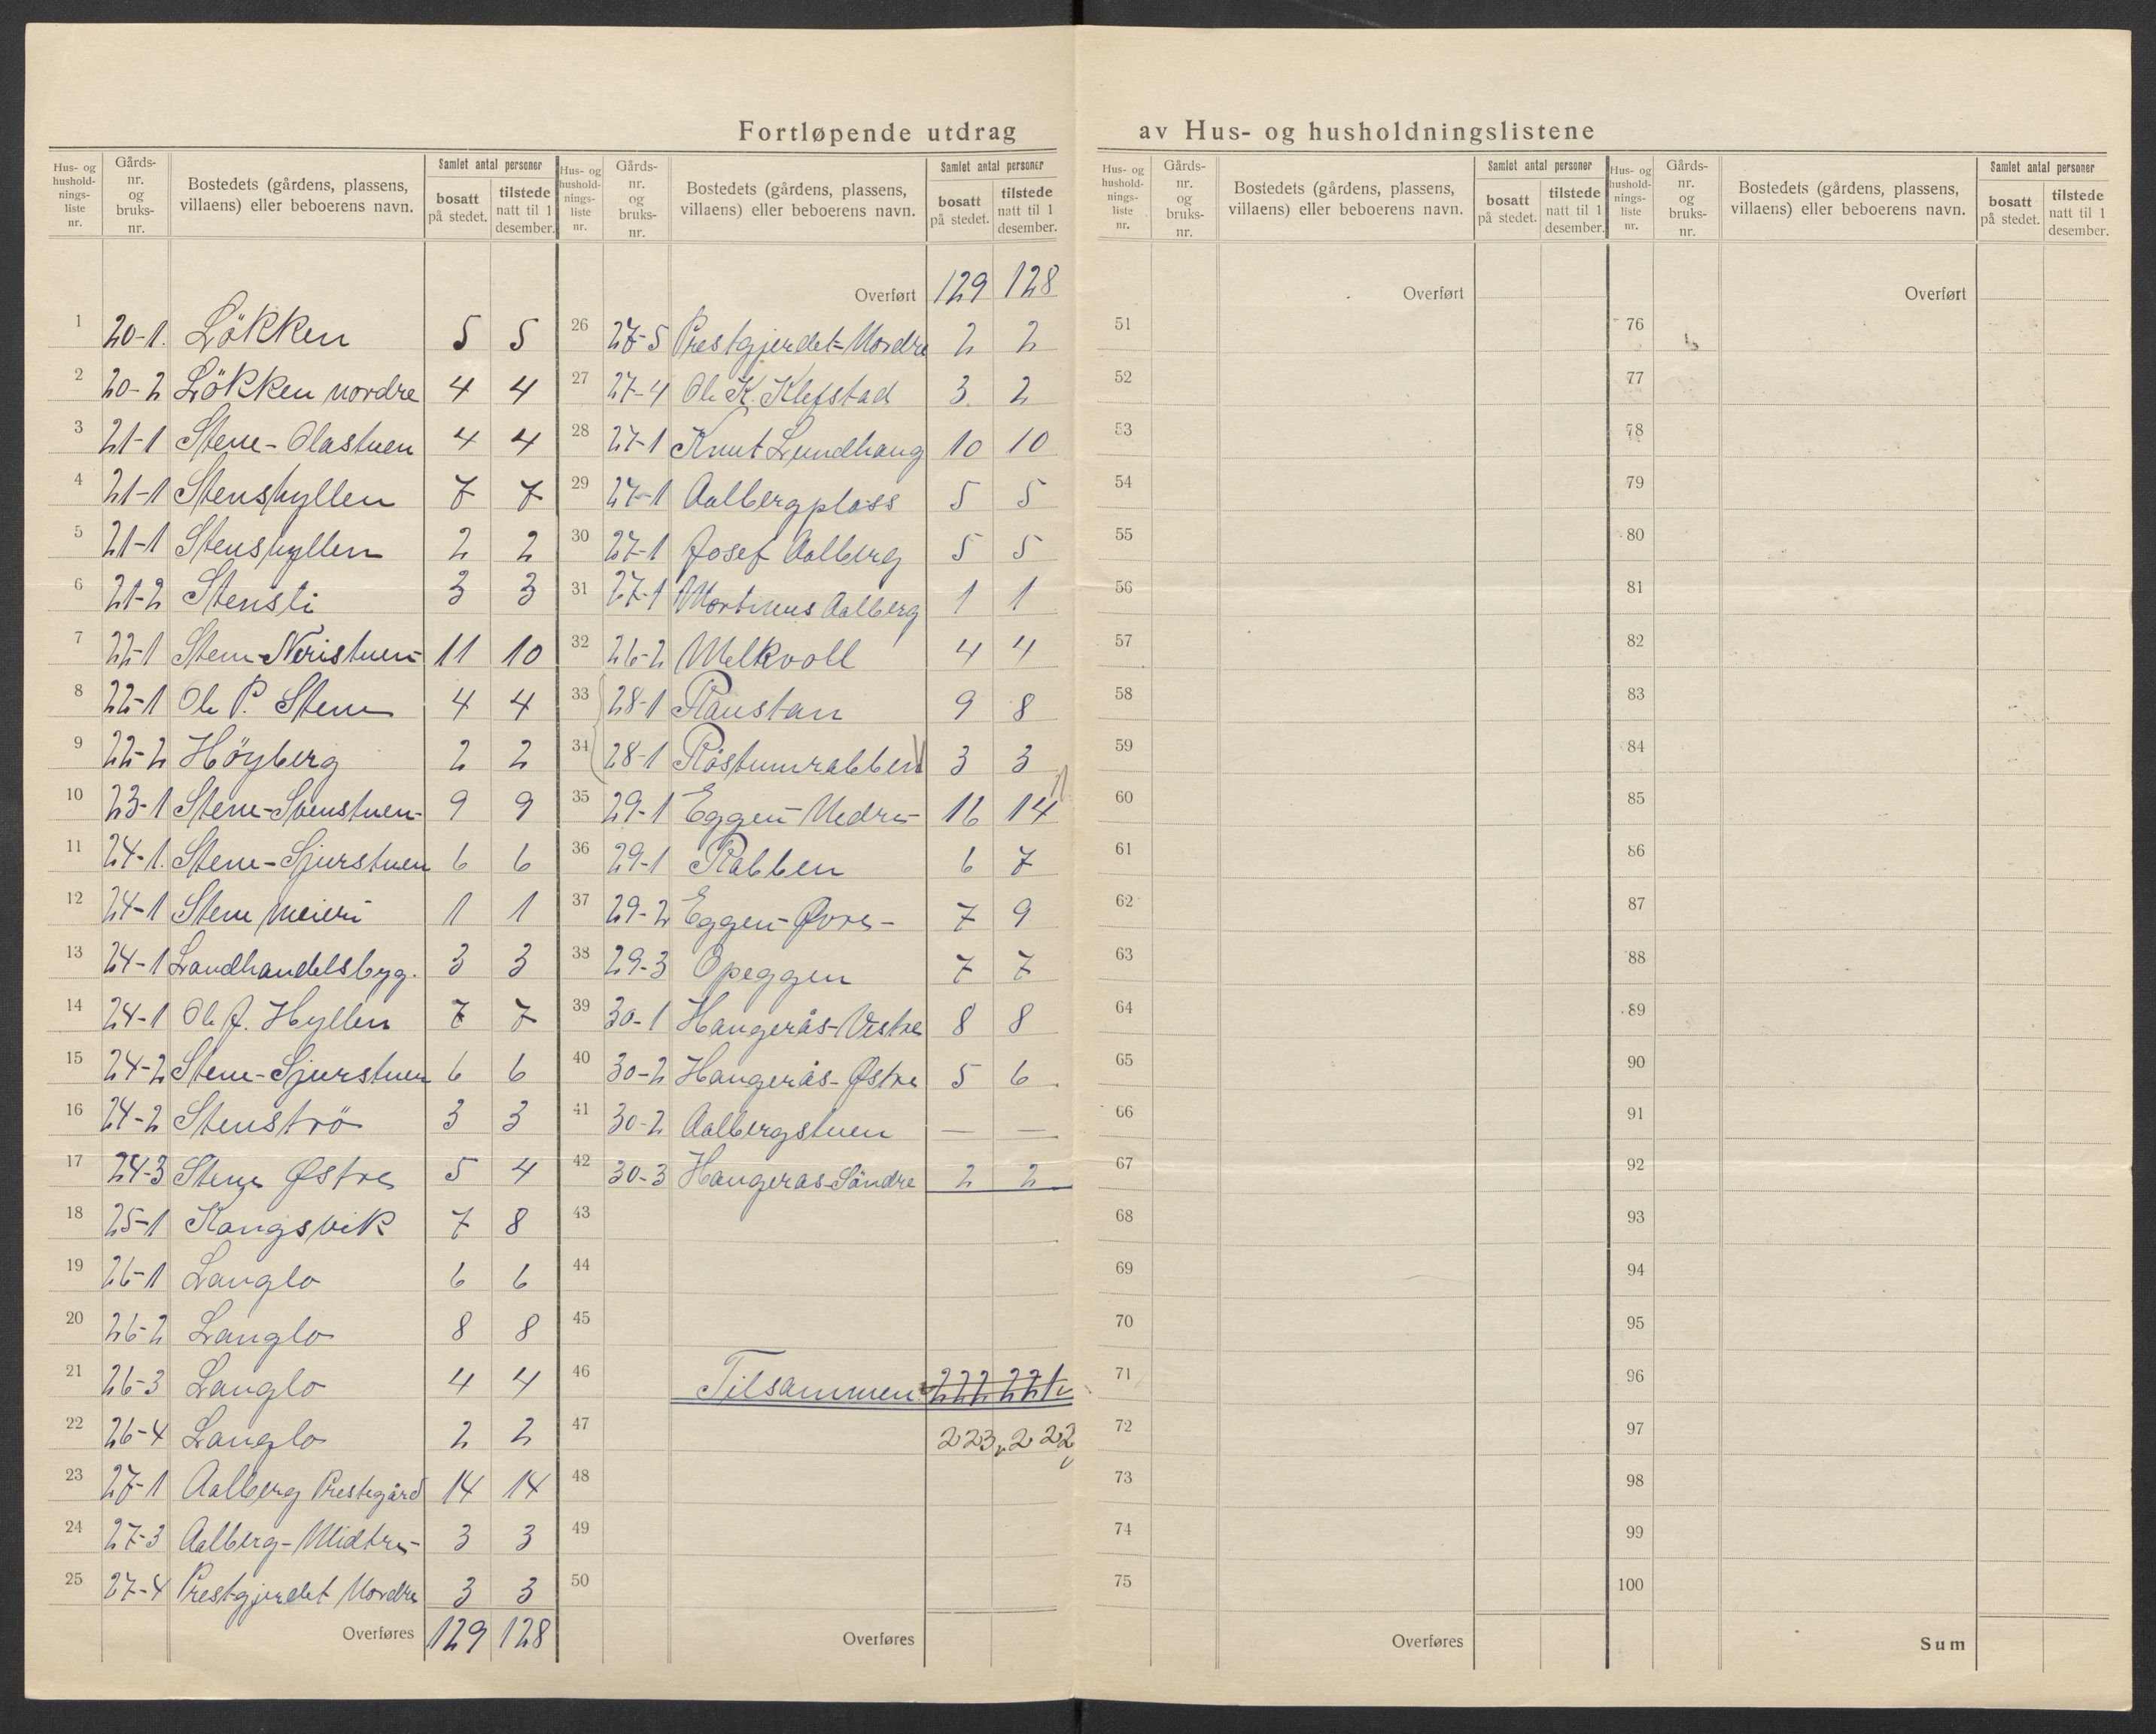 Fortløpende utdrag av Hus- og husholdningslistene
Hus- og hushold-nings-liste nr. | Gårds-nr. og bruks-nr. | Bostedets (gårdens, plassens, villaens) eller beboerens navn. | Samlet antal personer | bosatt på stedet. | tilstede natt til 1 desember.
1 20-1. Løkken 5 5
2 20-2 Løkken nordre 4 4
3 21-1 Stene-Olastuen 4 4
4 21-1 Stenshyllen 7 7
5 21-1 Stenshyllen 2 2
6 21-2 Stensli 3 3
7 22-1 Stene-Neristuen- 11 10
8 22-1 Ole P. Stene 4 4
9 22-2 Höyberg 2 2
10 23-1 Stene-Svenstuen- 9 9
11 24-1. Stene-Sjurstuen 6 6
12 24-1 Stene meieri 1 1
13 24-1 Landhandelsbyg. 3 3
14 24-1 Ole J. Hyllen 7 7
15 24-2 Stene-Sjurstuen 6 6
16 24-2 Stenströ 3 3
17 24-3 Stene Østre 5 4
18 25-1 Kongsvik 7 8
19 26-1 Langlo 6 6
20 26-2 Langlo 8 8
21 26-3 Langlo 4 4
22 26-4 Langlo 2 2
23 27-1 Aalberg Prestegård 14 14
24 27-3 Aalberg-Midtre- 3 3
25 27-4 Prestgjerdet Nordre 3 3
Overføres 129 128
Hus- og hushold-nings-liste nr. | Gårds-nr. og bruks-nr. | Bostedets (gårdens, plassens, villaens) eller beboerens navn. | Samlet antal personer | bosatt på stedet. | tilstede natt til 1 desember.
Overført 129 128
26 27-5 Prestgjerdet-Nordre 2 2
27 27-4 Ole K. Klefstad 3. 2
28 27-1 Knut Lundhaug 10 10
29 27-1 Aalbergplass 5 5
30 27-1 Josef Aalberg 5 5
31 27-1 Mortinus Aalberg 1 1
32 26-2 Melkvoll 4 4
33 28-1 Raustan 9 8
34 28-1 3 3
35 29-1 Eggen-Nedre- 16 14
36 29-1 Rabben 6 7
37 29-2 Eggen-Øvre- 7 9
38 29-3 Opeggen 7 7
39 30-1 Haugerås-Vestre 8 8
40 30-2 Haugerås-Østre 5 6
41 30-2 Aalbergstuen — —
42 30-3 Haugerås-Söndre 2 2
43
44
45
46 Tilsammen 222 221
47 223 222
48
49
50
Overføres
Hus- og hushold-nings-liste nr. | Gårds-nr. og bruks-nr. | Bostedets (gårdens, plassens, villaens) eller beboerens navn. | Samlet antal personer | bosatt på stedet. | tilstede natt til 1 desember.
Overført
51
52
53
54
55
56
57
58
59
60
61
62
63
64
65
66
67
68
69
70
71
72
73
74
75
Overføres
Hus- og hushold-nings-liste nr. | Gårds-nr. og bruks-nr. | Bostedets (gårdens, plassens, villaens) eller beboerens navn. | Samlet antal personer | bosatt på stedet. | tilstede natt til 1 desember.
Overført
76
77
78
79
80
81
82
83
84
85
86
87
88
89
90
91
92
93
94
95
96
97
98
99
100
Sum